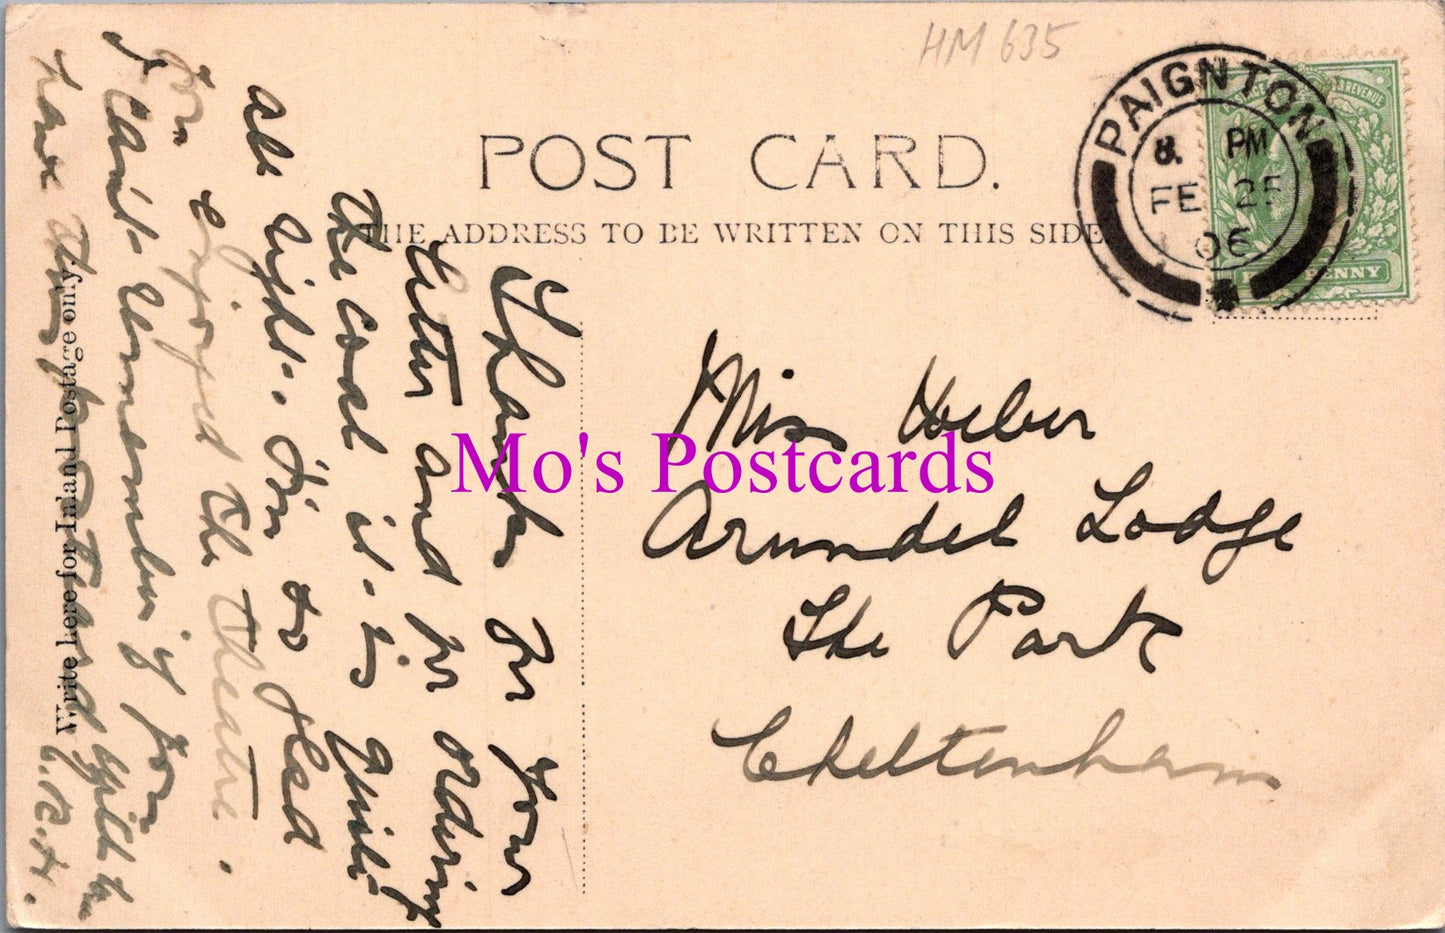 HM 635
POST CARD.
THE ADDRESS TO BE WRITTEN ON THIS SIDE
PAIGNTON
8. PM
FE 25
06
REVENUE
PENNY
Miss Heber
Arundel Lodge
The Park
Cheltenham
Mo's Postcards
Write here for Inland Postage only.
Thanks for your
letter and for ordering
the coal it is quite
all right. I'm so glad
you enjoyed the theatre.
I can't remember if you
have this postcard